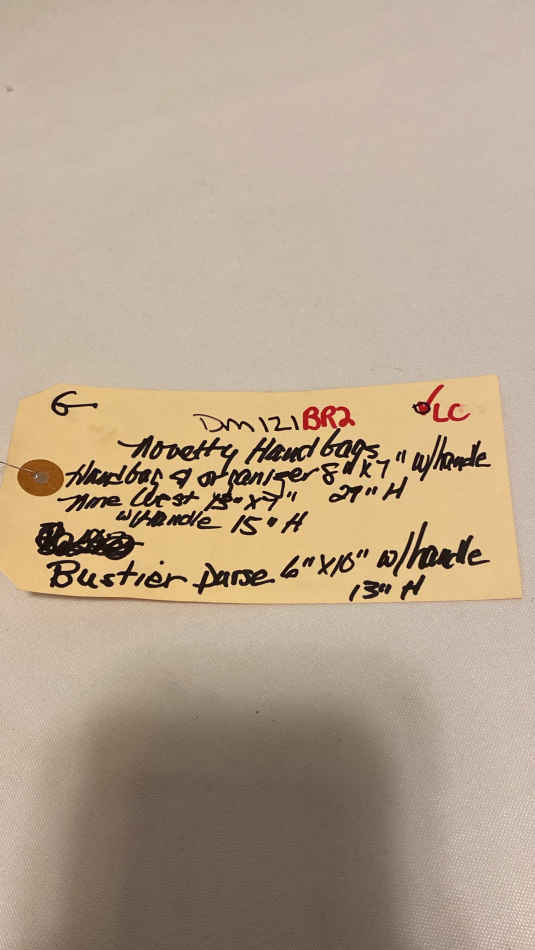 G
DM121 BR2 LC
Novelty Handbags
Handbag & organiser 8" x 7" w/handle
Nine West 13" x 7" 29" H
w/Handle 15" H
Bustier Purse 6" x 10" w/handle
13" H